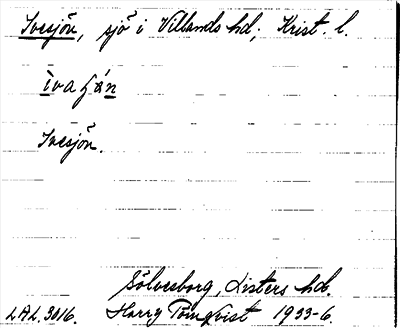 Ivesjön, sjö i Villands hd, Krist. l.
Ivesjön.
Sölvesborg, Listers hd.
L.A.L. 3016. Harry Törnqvist 1933-6.